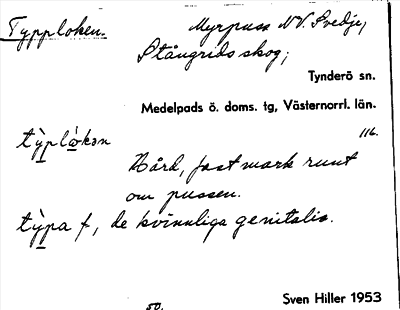 Typploken. Myrpuss NV. Svedje,
Stångrids skog;
Tynderö sn.
Medelpads ö. doms. tg, Västernorrl. län.
116.
tỳplǻkən
Hård, fast mark runt
om pussen.
tỳpa f, de kvinnliga genitalia.
50.
Sven Hiller 1953